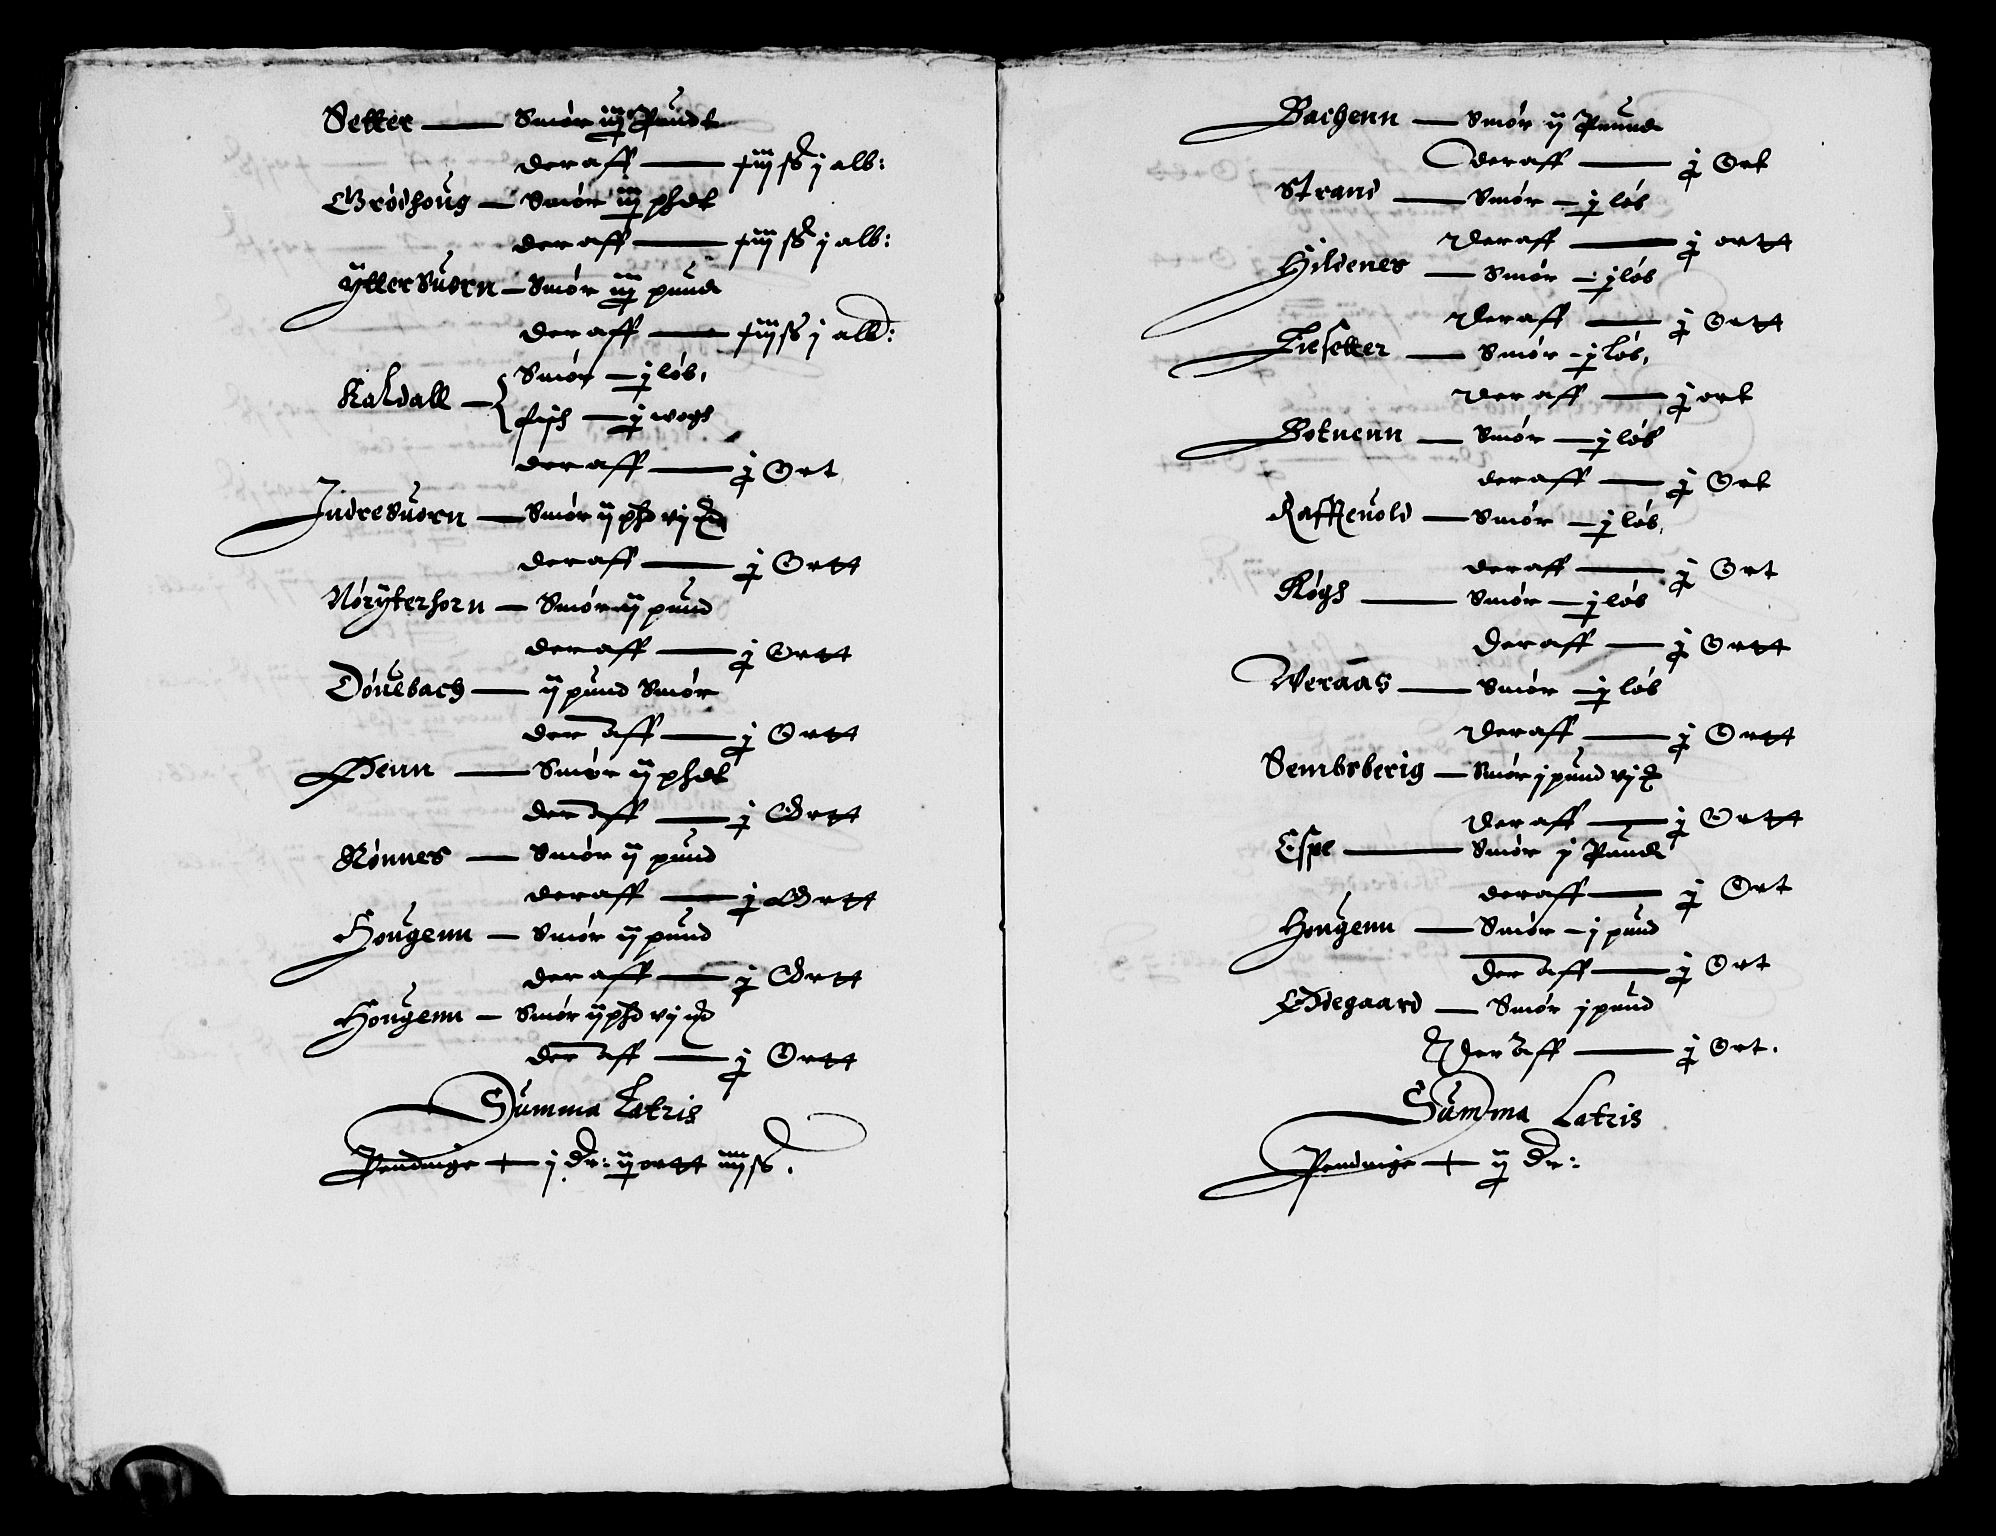 Setter — Smór iiij Pundt
deraff — xiiij ß j alb:
Gródhoug — Smór iiij phdt
der aff — xiiij ß j alb:
Ytter Suorn — Smór iiij pund
der aff — xiiij ß j alb:
Kaldall — Smór — j lób,
fish — j wogh
deraff — j Ort
Indre Suorn — Smór ij phd vj
deraff — j Ortt
Nórÿterhorn — Smór ij pund
deraff — j Ortt
Dónebach — ij pund Smór
der aff — j Ortt
Henn — Smór ij phdt
der aff — j Ortt
Rónnes — Smór ij pund
deraff — j Ortt
Hougenn — Smór ij pund
der aff — j Ortt
Hougenn — Smór ij phd vj
der aff — j Ortt
Summa Latris
Pendinge — j dr: ij ortt iiij ß.
Bachenn — Smór ij Pund
deraff — j Ort
Strand — Smór — j lób
deraff — j ortt
Hildenes — Smór — j lób
deraff — j Ortt
Liesetter — Smór — j lób,
der aff — j ort
Botnenn — Smór — j lób
deraff — j Ort
Raffneuold — Smór — j lób,
deraff — j Ort
Kógh — Smór — j lób
deraff — j Ortt
Weraas — Smór — j lób
deraff — j Ortt
Sembsberig — Smór j pund vj
der aff — j Ortt
Espe — Smór j Pund
deraff — j Ort
Hougenn — Smór — j pund
der aff — j Ort
Ódegaard — Smór j pund
der aff — j Ort.
Summa Latris
Pendinge — ij dr: